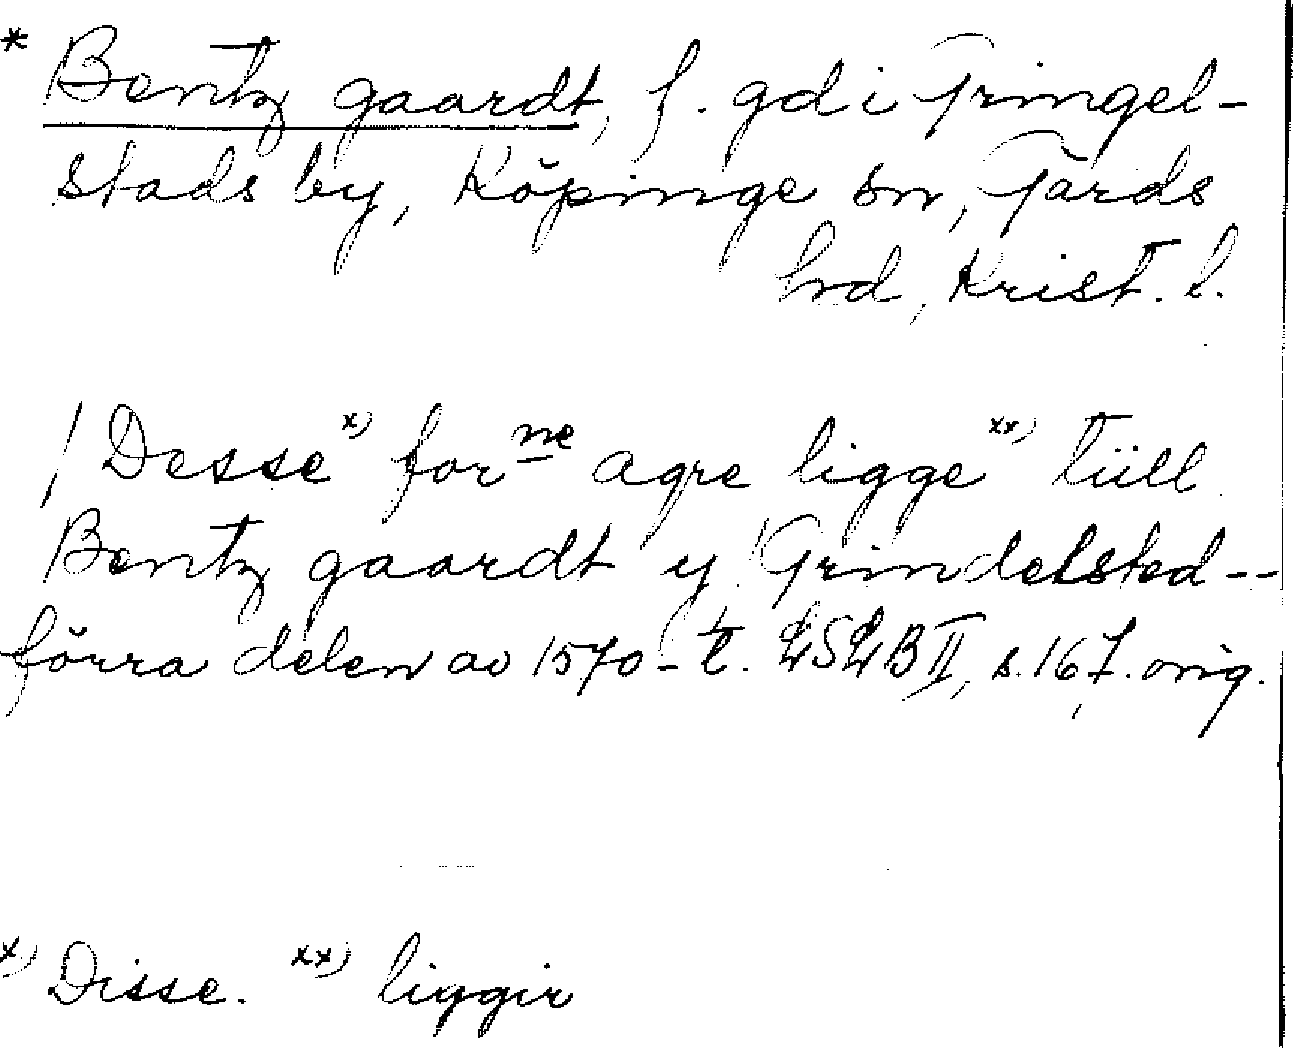 * Bentz gaardt, f. gd i Tringel-
stads by, Köpinge sn, Gärds
hrd, Krist. l.
/ Desse x) forne agre ligge xx) tiill
Bentz gaardt y Grindelsted--
förra delen av 1570-t. LSLB II, s. 167. orig.
x) Disse. xx) liggir